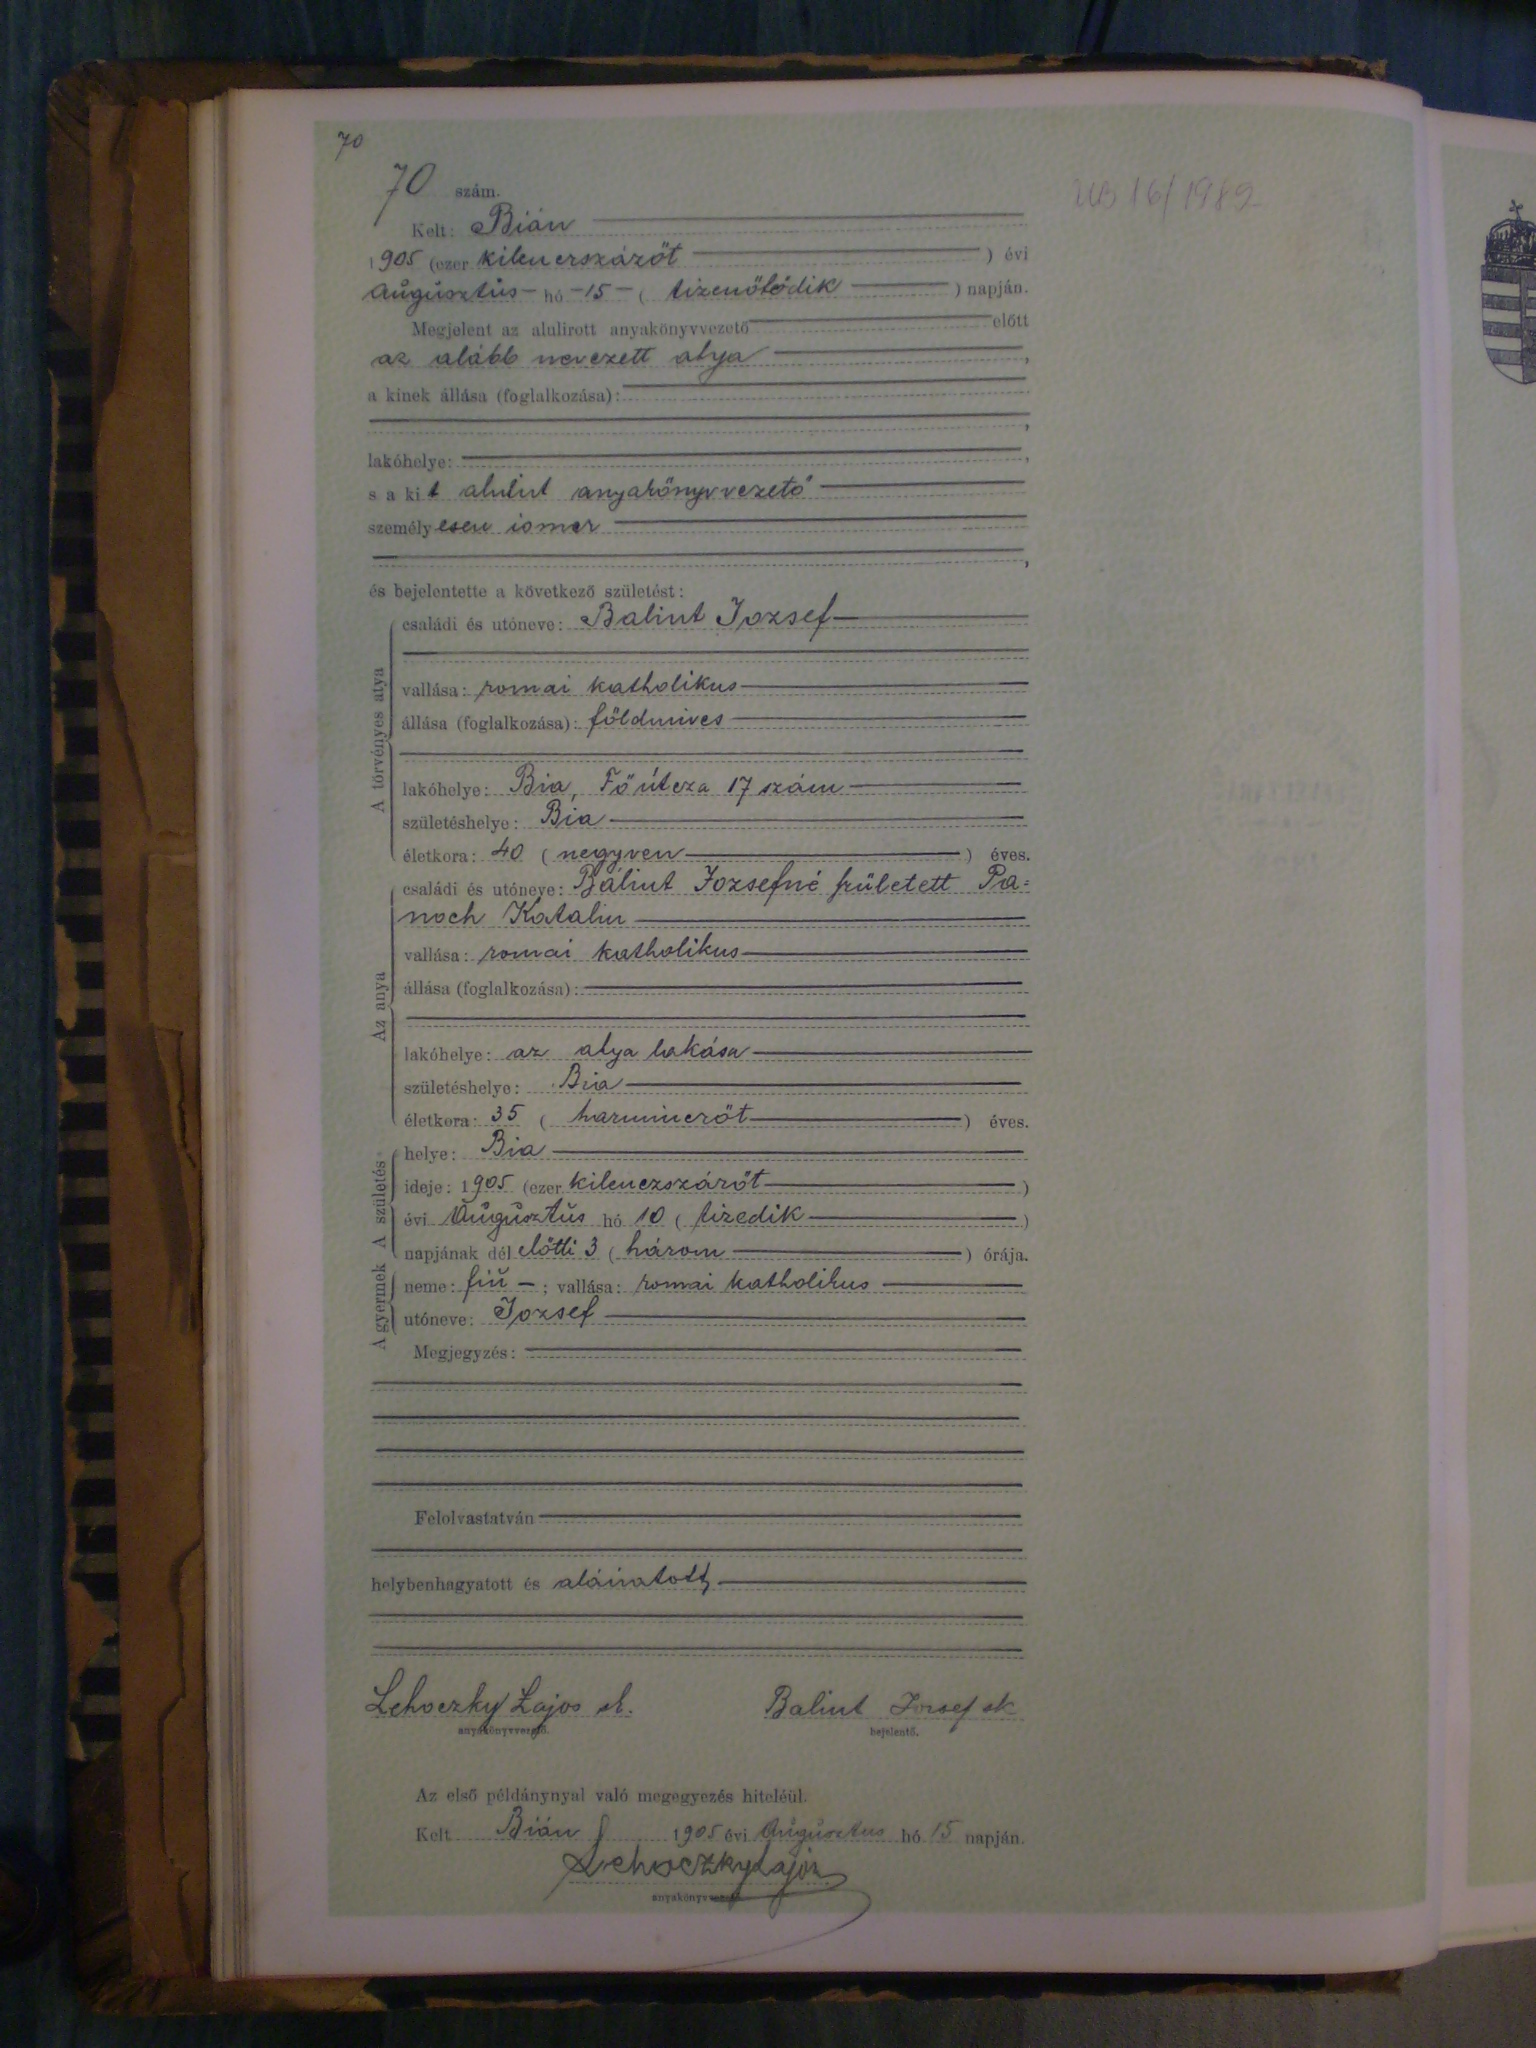 70
70 szám.
UB 16/1989
Kelt: Bián
1905 (ezer kilenczszázöt) évi
Augusztus hó 15 (tizenötödik) napján.
Megjelent az alulirott anyakönyvvezető előtt
az alább nevezett atya,
a kinek állása (foglalkozása):
,
lakóhelye: ,
s a kit alulirt anyakönyvvezető
személyesen ismer
,
és bejelentette a következő születést:
A törvényes atya
családi és utóneve: Balint Jozsef
vallása: romai katholikus
állása (foglalkozása): földmives
lakóhelye: Bia, Fő útcza 17 szám
születéshelye: Bia
életkora: 40 (negyven) éves.
Az anya
családi és utóneve: Bálint Jozsefné született Pa=
noch Katalin
vallása: romai katholikus
állása (foglalkozása):
lakóhelye: az atya lakása
születéshelye: Bia
életkora: 35 (harminczöt) éves.
A születés
helye: Bia
ideje: 1905 (ezer kilenczszázöt)
évi Augusztus hó 10 (tizedik)
napjának dél előtti 3 (három) órája.
A gyermek
neme: fiú; vallása: romai katholikus
utóneve: Jozsef
Megjegyzés:
Felolvastatván
helybenhagyatott és aláiratott,
Lehoczky Lajos sk. Balint Jozsef sk
anyakönyvvezető. bejelentő.
Az első példánynyal való megegyezés hiteléül.
Kelt Bián 1905 évi Augusztus hó 15 napján.
Lehoczky Lajos
anyakönyvvezető.